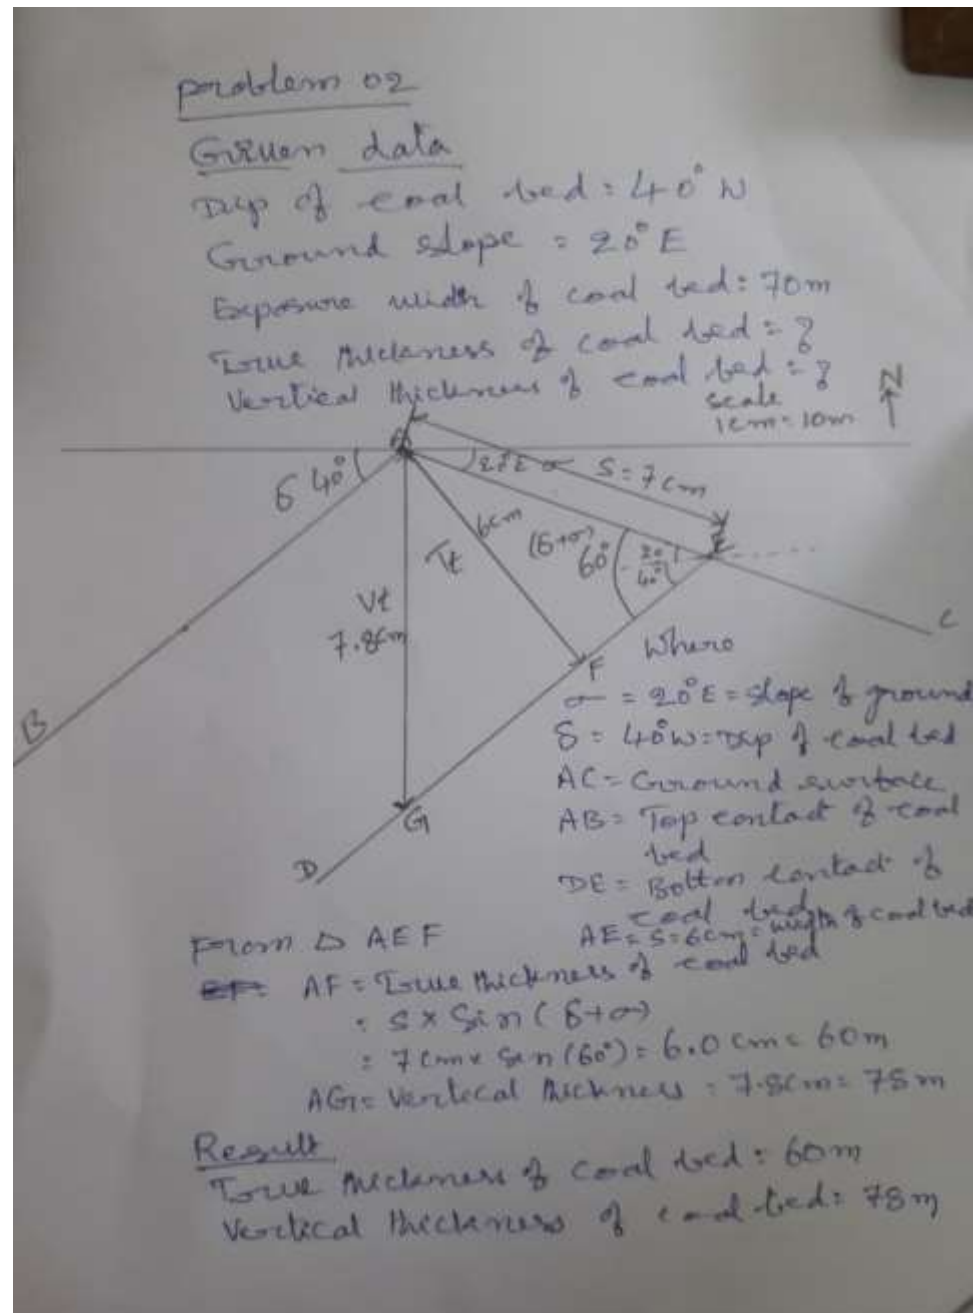 Problem 02
Given data
Dip of coal bed = 40° W
Ground slope = 20° E
Exposure width of coal bed = 70m
True thickness of coal bed = ?
Vertical thickness of coal bed = ?
scale
1cm = 10m
N
A
δ 40°
20°E σ
S = 7cm
6cm
Tt
(δ+σ)
60°
20
40°
E
Vt
7.8cm
C
F
B
G
D
Where
σ = 20°E = slope of ground
δ = 40°W = Dip of coal bed
AC = Ground surface
AB = Top contact of coal
bed
DE = Bottom contact of
coal bed
AE = S = 6cm = width of coal bed
From Δ AEF
AF = True thickness of coal bed
= S × Sin (δ+σ)
= 7cm × Sin (60°) = 6.0 cm = 60m
AG = Vertical thickness = 7.8cm = 78m
Result
True thickness of coal bed = 60m
Vertical thickness of coal bed = 78m